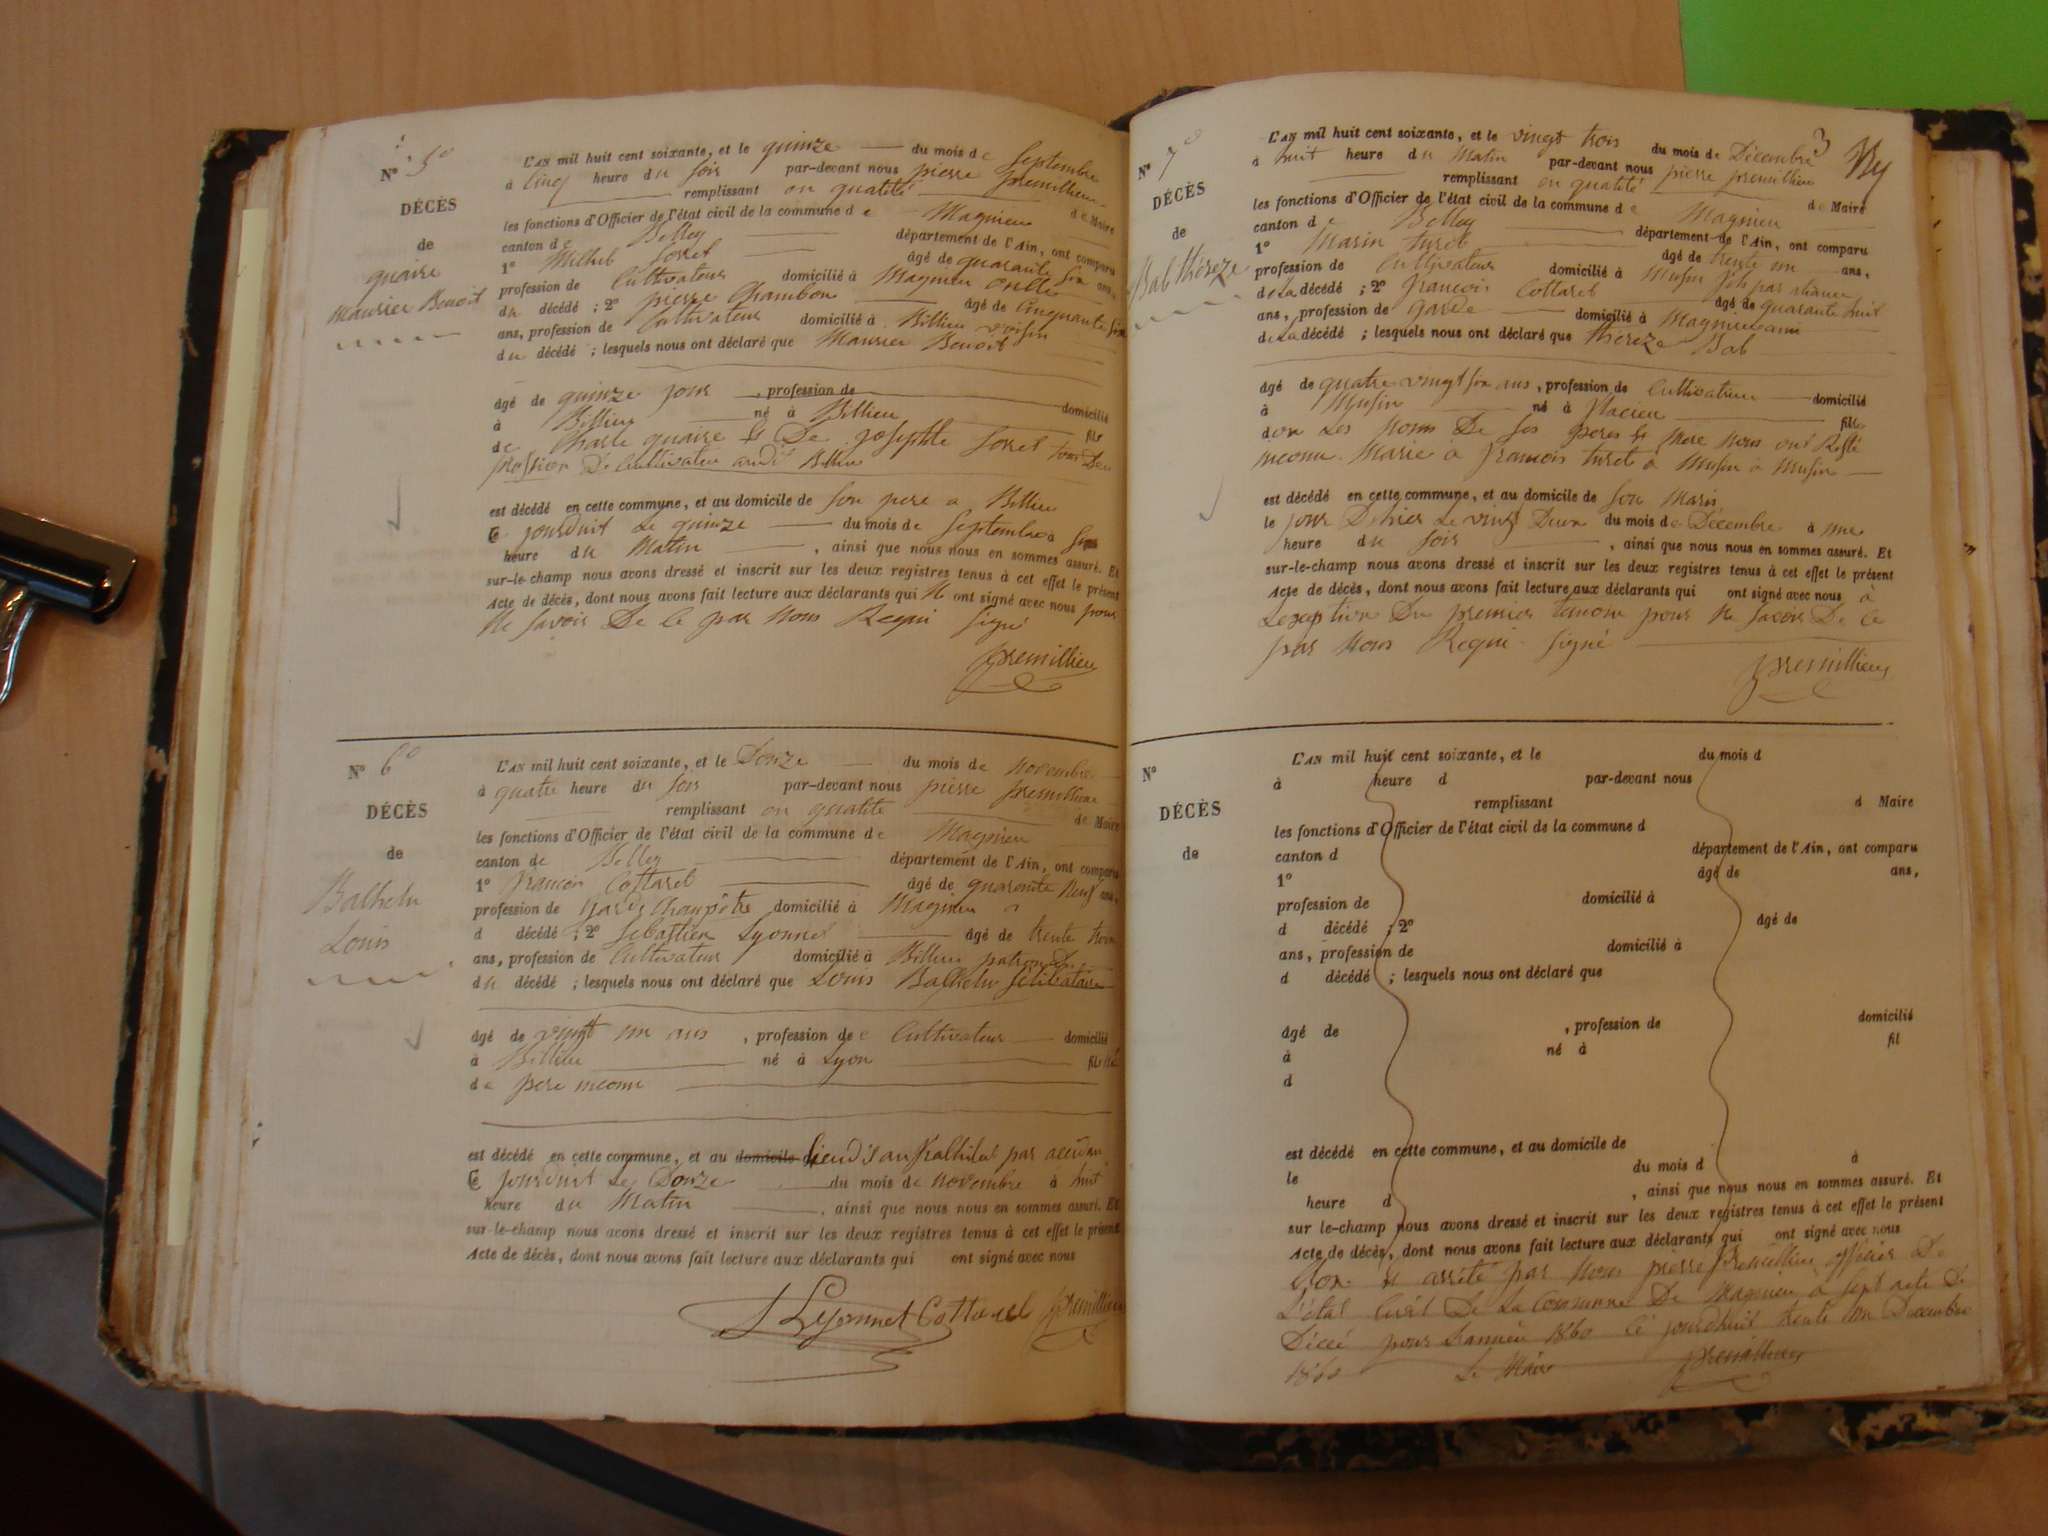 N° 5°
DÉCÈS
de
quaire
Maurier Benoit
L'AN mil huit cent soixante, et le quinze du mois de Septembre
à Cinq heure du soir par-devant nous pierre premillieu
remplissant en qualité de Maire
les fonctions d'Officier de l'état civil de la commune de Magnieu
canton de Belley département de l'Ain, ont comparu
1° Sorret âgé de quarante six ans,
profession de Cultivateur domicilié à Magnieu oncle
du décédé ; 2° pierre Chambon âgé de Cinquante six
ans, profession de Cultivateur domicilié à Billieu voisin
du décédé ; lesquels nous ont déclaré que Maurier Benoit
âgé de quinze jour , profession de domicilié
à Billieu né à Billieu fils
de Charle quaire & De josephte Sorret tous Deu
profession De Cultivateur audit Billieu
est décédé en cette commune, et au domicile de son pere a Billieu
Ce jourduit Le quinze du mois de Septembre à six
heure du Matin , ainsi que nous nous en sommes assuré. Et
sur-le-champ nous avons dressé et inscrit sur les deux registres tenus à cet effet le présent
Acte de décès, dont nous avons fait lecture aux déclarants qui N ont signé avec nous pour
Ne savoir De le par Nous Requi signé
premillieu
N° 6°
DÉCÈS
de
Balhelu
Louis
L'AN mil huit cent soixante, et le Douze du mois de novembre
à quatre heure du soir par-devant nous pierre premillieu
remplissant en qualité de Maire
les fonctions d'Officier de l'état civil de la commune de Magnieu
canton de Belley département de l'Ain, ont comparu
1° françois Cottarel âgé de quarante Neuf ans,
profession de Garde Champêtre domicilié à Magnieu
d décédé ; 2° Sebastien Lyonnet âgé de trente trois
ans, profession de Cultivateur domicilié à Billieu patron
du décédé ; lesquels nous ont déclaré que Louis Balhelu Selibataire
âgé de vingt un ans , profession de Cultivateur domicilié
à Billieu né à Lyon fils
de pere inconu
est décédé en cette commune, et au domicile lieudis au par accidan
Ce jourduit Le Douze du mois de novembre à huit
heure du Matin , ainsi que nous nous en sommes assuré. Et
sur-le-champ nous avons dressé et inscrit sur les deux registres tenus à cet effet le présent
Acte de décès, dont nous avons fait lecture aux déclarants qui ont signé avec nous
S Lyonnet Cottarel premillieu
3
N° 7°
DÉCÈS
de
Bab théreze
L'AN mil huit cent soixante, et le vingt trois du mois de Décembre
à huit heure du Matin par-devant nous pierre premillieu
remplissant en qualité de Maire
les fonctions d'Officier de l'état civil de la commune de Magnieu
canton de Belley département de l'Ain, ont comparu
1° Marin turel âgé de trente un ans,
profession de Cultivateur domicilié à Musin fils par aliance
de La décédé ; 2° françois Cottarel âgé de quarante huit
ans, profession de garde domicilié à Magnieu ami
de La décédé ; lesquels nous ont déclaré que théreze Bab
âgé de quatre vingt six ans , profession de Cultivatrice domicilié
à Musin né à Placieu fille
don Les Noms De ses peres & Mere Nous ont Resté
inconu. Marie à françois turel à Musin à Musin
est décédé en cette commune, et au domicile de son Marin
le jour Dernier Le vingt Deux du mois de Décembre à une
heure du soir , ainsi que nous nous en sommes assuré. Et
sur-le-champ nous avons dressé et inscrit sur les deux registres tenus à cet effet le présent
Acte de décès, dont nous avons fait lecture aux déclarants qui ont signé avec nous à
Lexeption Du premier temoin pour Ne savoir De Ce
par Nous Requi signé
premillieu
N°
DÉCÈS
de
L'AN mil huit cent soixante, et le du mois d
à heure d par-devant nous
remplissant d Maire
les fonctions d'Officier de l'état civil de la commune d
canton d département de l'Ain, ont comparu
1° âgé de ans,
profession de domicilié à
d décédé ; 2° âgé de
ans, profession de domicilié à
d décédé ; lesquels nous ont déclaré que
âgé de , profession de domicilié
à né à fil
d
est décédé en cette commune, et au domicile de
le du mois d à
heure d , ainsi que nous nous en sommes assuré. Et
sur le-champ nous avons dressé et inscrit sur les deux registres tenus à cet effet le présent
Acte de décès, dont nous avons fait lecture aux déclarants qui ont signé avec nous
Clos & arrêté par Nous pierre premillieu officier De
L'état Civil De La Commune De Magnieu à sept acte De
Décé pour Lannéu 1860 Ce jourduit trente un Decembre
1860 Le Maire premillieu